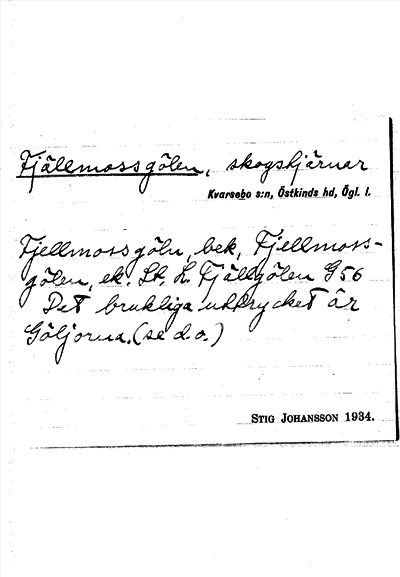 Fjällmossgölen, skogstjärnar
Kvarsebo s:n, Östkinds hd, Ögl. l.
Fjellmossgöln, bek, Fjellmoss-
gölen, ek. St. L. Fjällgölen G56
Det brukliga uttrycket är
Göljorna. (se d.o.)
STIG JOHANSSON 1934.